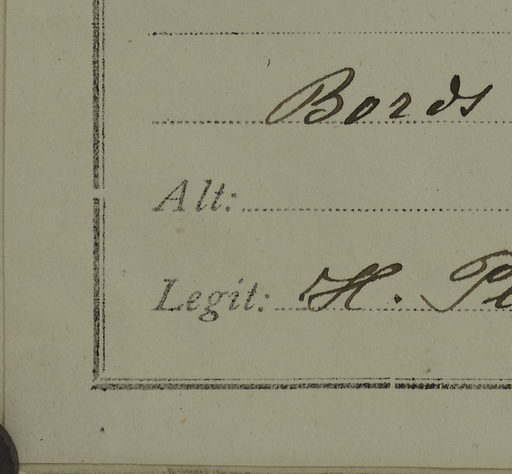 Bords
Alt:
Legit: H. Pe